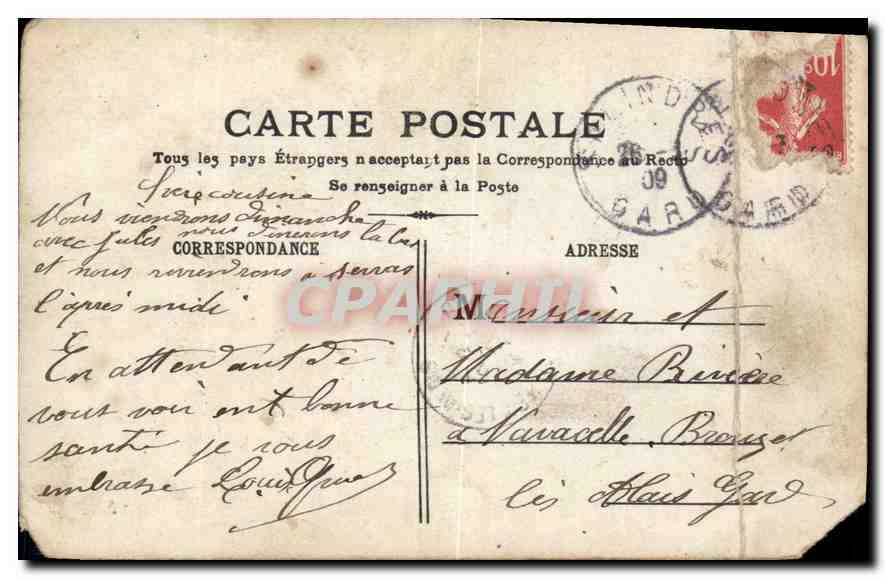 CARTE POSTALE
Tous les pays Étrangers n'acceptant pas la Correspondance au Recto
Se renseigner à la Poste
CORRESPONDANCE
cousine
Nous viendrons dimanche
avec Jules nous dinerons
et nous reviendrons a servas
l'après midi
En attendant de
vous voir ent bonne
santé je vous
embrasse Louis
ADRESSE
Monsieur et
Madame Rivière
a Navacelle Brouzet
lès Alais Gard
SALINDRES
26
09
GARD
GARD
10c
CPARHIL